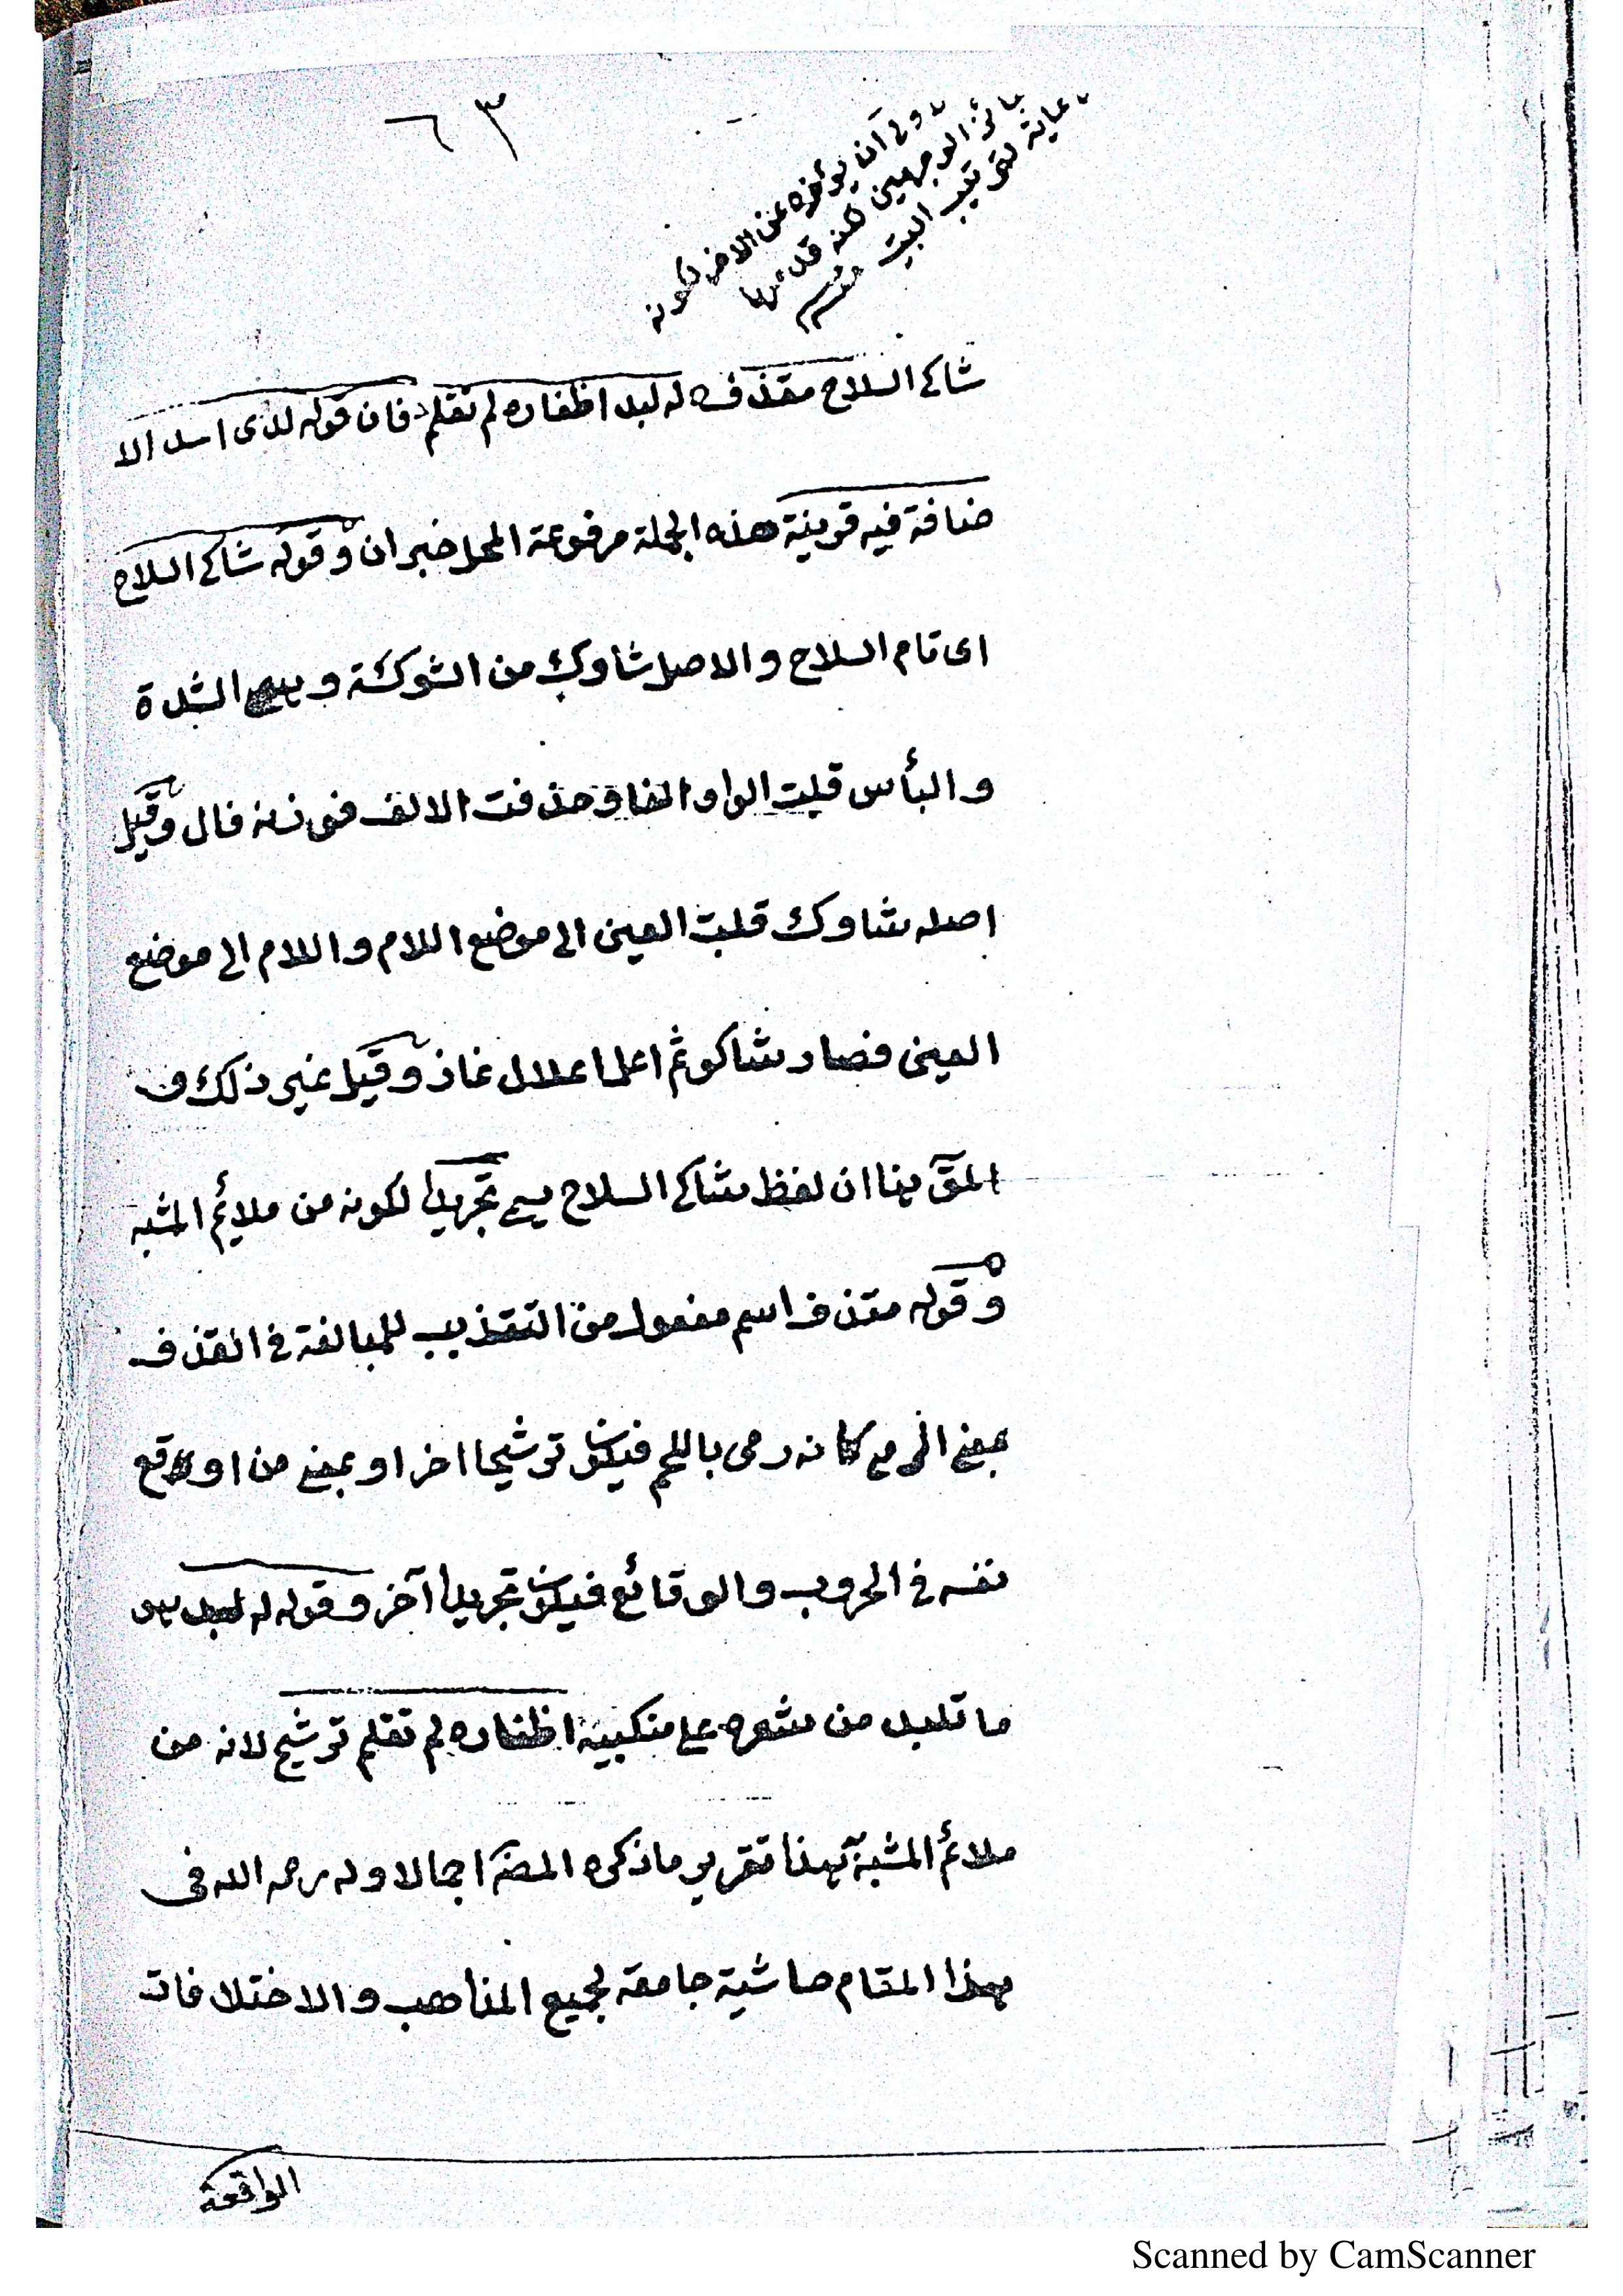 ٦٣
ولى ان يؤخره عن الاخر لكونه
جائز الوجهين لكنه قدم رعا
عاية لترتيب البيت منه
شاكى السلاح مقذف له لبد اظفاره لم تقلم فان قوله لدى اسد الا
ضافة فيه قرينة هذه الجملة مرفوعة المحل خبر ان وقوله شاكى السلاح
اى تام السلاح والاصل شاوك من الشوكة وهى الشدة
والبأس قلبت الواو الفا وحذفت الالف فوزنه فال وقيل
اصله شاوك قلبت العين الى موضع اللام واللام الى موضع
العين فصار شاكو ثم اعل اعلال غاز وقيل غير ذلك و
المقٓ هنا ان لفظ شاكى السلاح يسمى تجريدا لكونه من ملائم المشبه
وقوله مقذف اسم مفعول من التقذيب للمبالغة فى القذف
بمعنى الرمى كانه رمى باللحم فيكون ترشيحا اخر او بمعنى من اوقع
نفسه فى الحروب والوقائع فيكون تجريدا آخر وقوله له لبد هى
ما تلبد من شعره على منكبيه اظفاره لم تقلم ترشيح لانه من
ملائم المشبه به هذا تقرير ما ذكره المصٓ اجمالا وله رحمه الله فى
هذا المقام حاشية جامعة لجميع المذاهب والاختلافات
الواقعة
Scanned by CamScanner